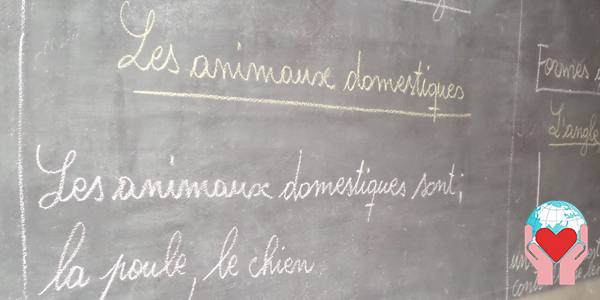 Les animaux domestiques
Les animaux domestiques sont;
la poule, le chien
Formes
L'angle